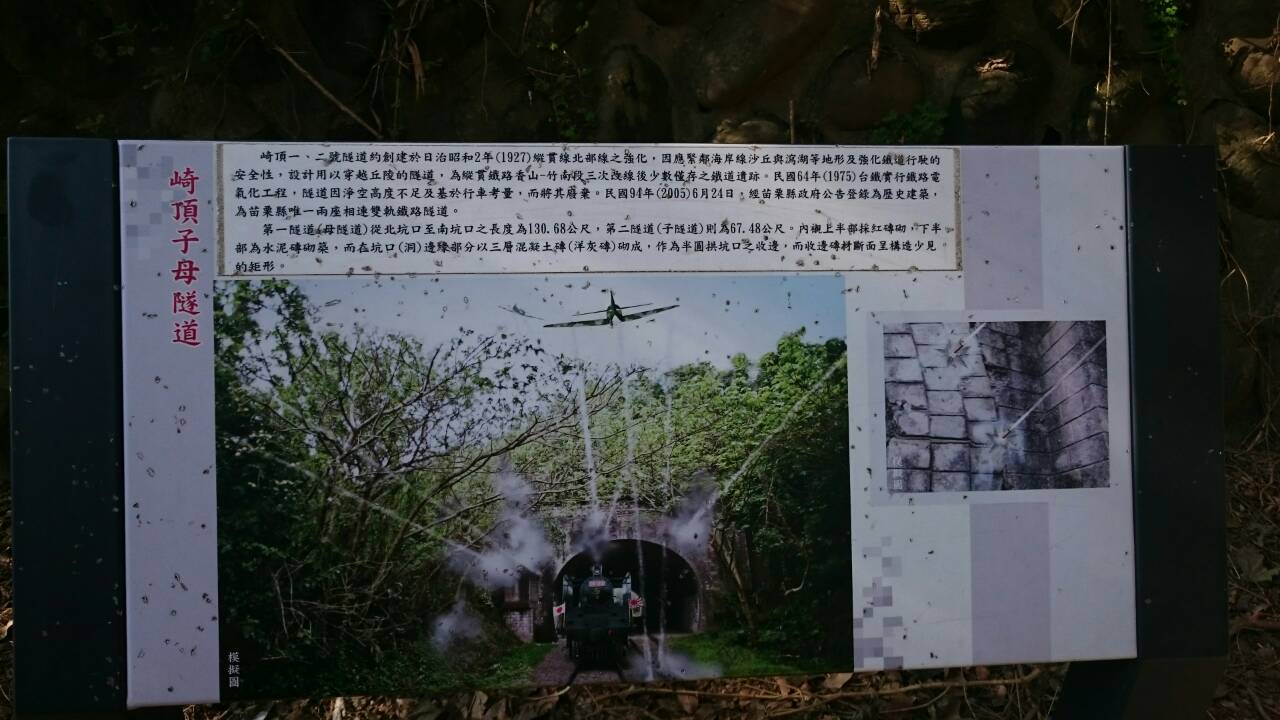 崎頂子母隧道
崎頂一、二號隧道約創建於日治昭和2年(1927)縱貫線北部線之強化，因應緊鄰海岸線沙丘與瀉湖等地形及強化鐵道行駛的
安全性，設計用以穿越丘陵的隧道，為縱貫鐵路香山-竹南段三次改線後少數僅存之鐵道遺跡。民國64年(1975)台鐵實行鐵路電
氣化工程，隧道因淨空高度不足及基於行車考量，而將其廢棄。民國94年(2005)6月24日，經苗栗縣政府公告登錄為歷史建築，
為苗栗縣唯一兩座相連雙軌鐵路隧道。
第一隧道(母隧道)從北坑口至南坑口之長度為130.68公尺，第二隧道(子隧道)則為67.48公尺。內襯上半部採紅磚砌，下半
部為水泥磚砌築，而在坑口(洞)邊緣部分以三層混凝土磚(洋灰磚)砌成，作為半圓拱坑口之收邊，而收邊磚將斷面呈構造少見
的矩形。
模擬圖